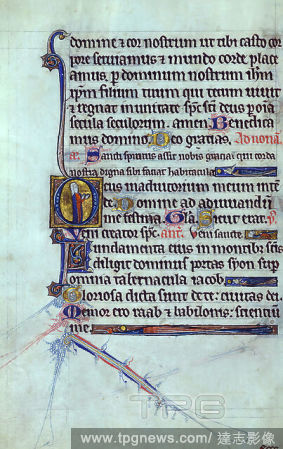 domine & cor nostrum ut tibi casto cor
pore seruiamus & mundo corde place
amus. p dominum nostrum ihm
xpm filium tuum qui tecum uiuit
& regnat in unitate sps sci deus p oia
secula seculorum. amen. Benedica
mus domino. Deo gratias. Ad nona
Sancti spiritus assit nobis gratia qui corda
nostra digna sibi faciat habitacula
Deus in adiutorium meum inte
de. Domine ad adiuuandu
me festina. Gla. Sicut erat. p.
Veni creator sps. ant. Veni sancte.
Fundamenta eius in montibus scis
diligit dominus portas syon sup
omnia tabernacula iacob
Gloriosa dicta sunt de te: ciuitas dei.
Memor ero raab & babilonis: scientiu
me.
TPG
www.tpgnews.com / 達志影像